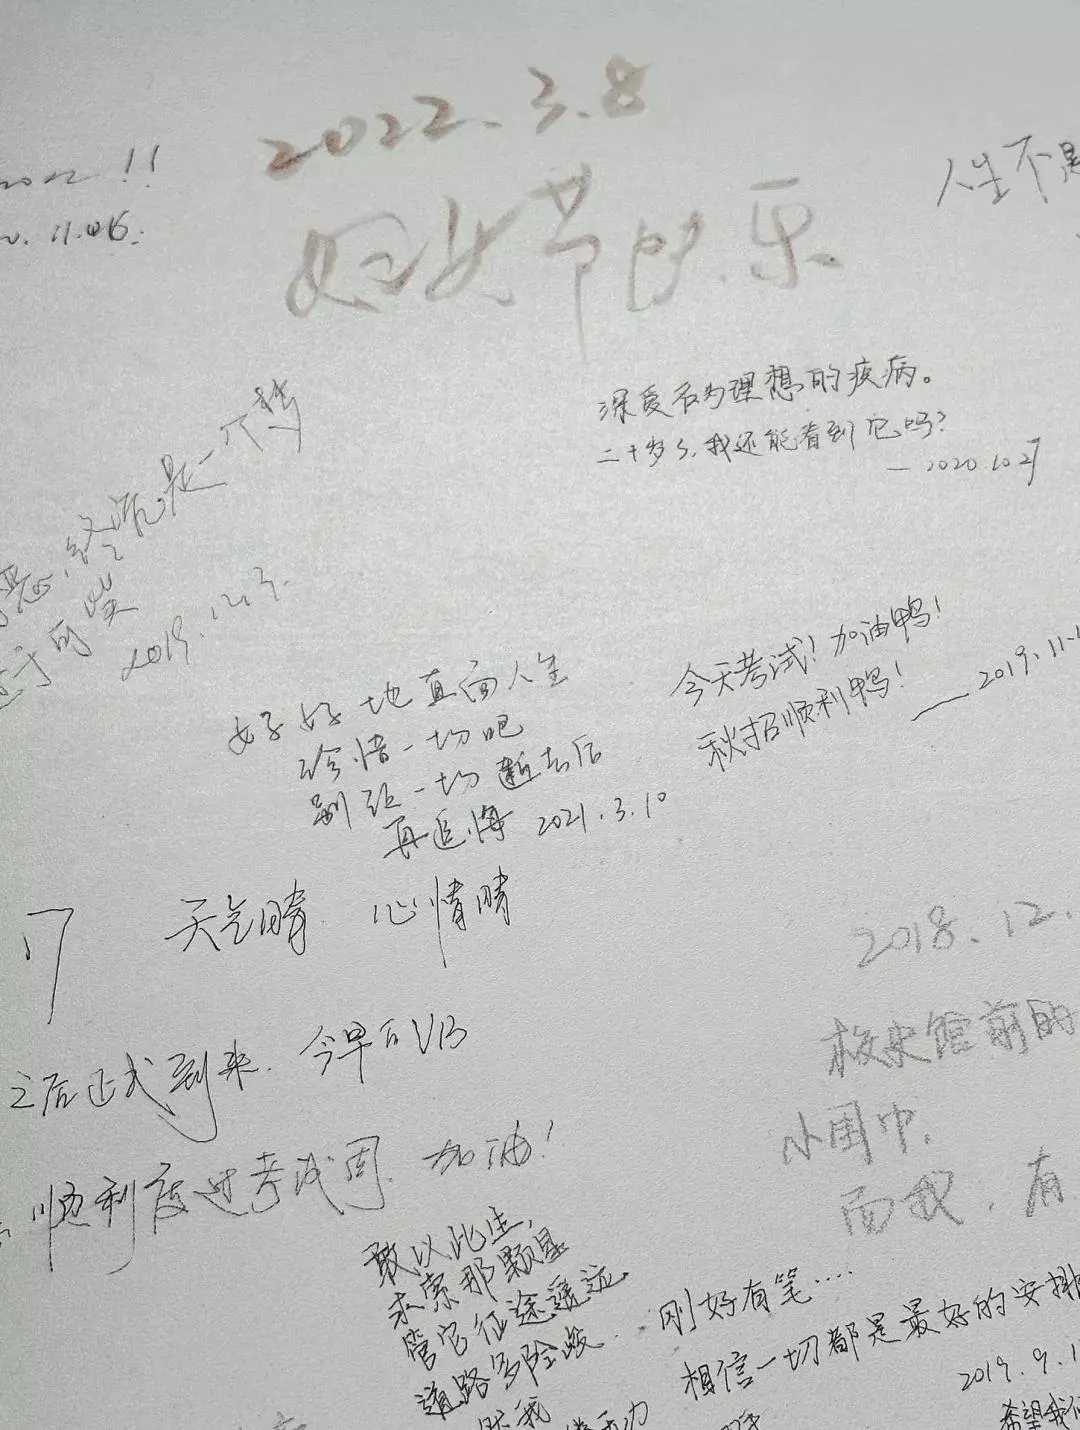 2022.3.8
2022!!
11.06.
人生不是
妇女节快乐
深爱名为理想的疾病。
二十岁了,我还能看到它吗?
—2020.10.27
恶,终究是一个梦
可笑
2019.12.3.
今天考试!加油鸭!
秋招顺利鸭!
——2019.11.
好好地直面人生
珍惜一切吧
别让一切逝去后
再追悔 2021.3.10
天气晴 心情晴
2018.12.
校史馆前的
之后正式到来.今早
小雨中,
而我,有
顺利度过考试周.加油!
敢以此生,
求索那颗星
管它征途遥远
道路多险峻.
刚好有笔....
相信一切都是最好的安排
2019.9.1
希望我们